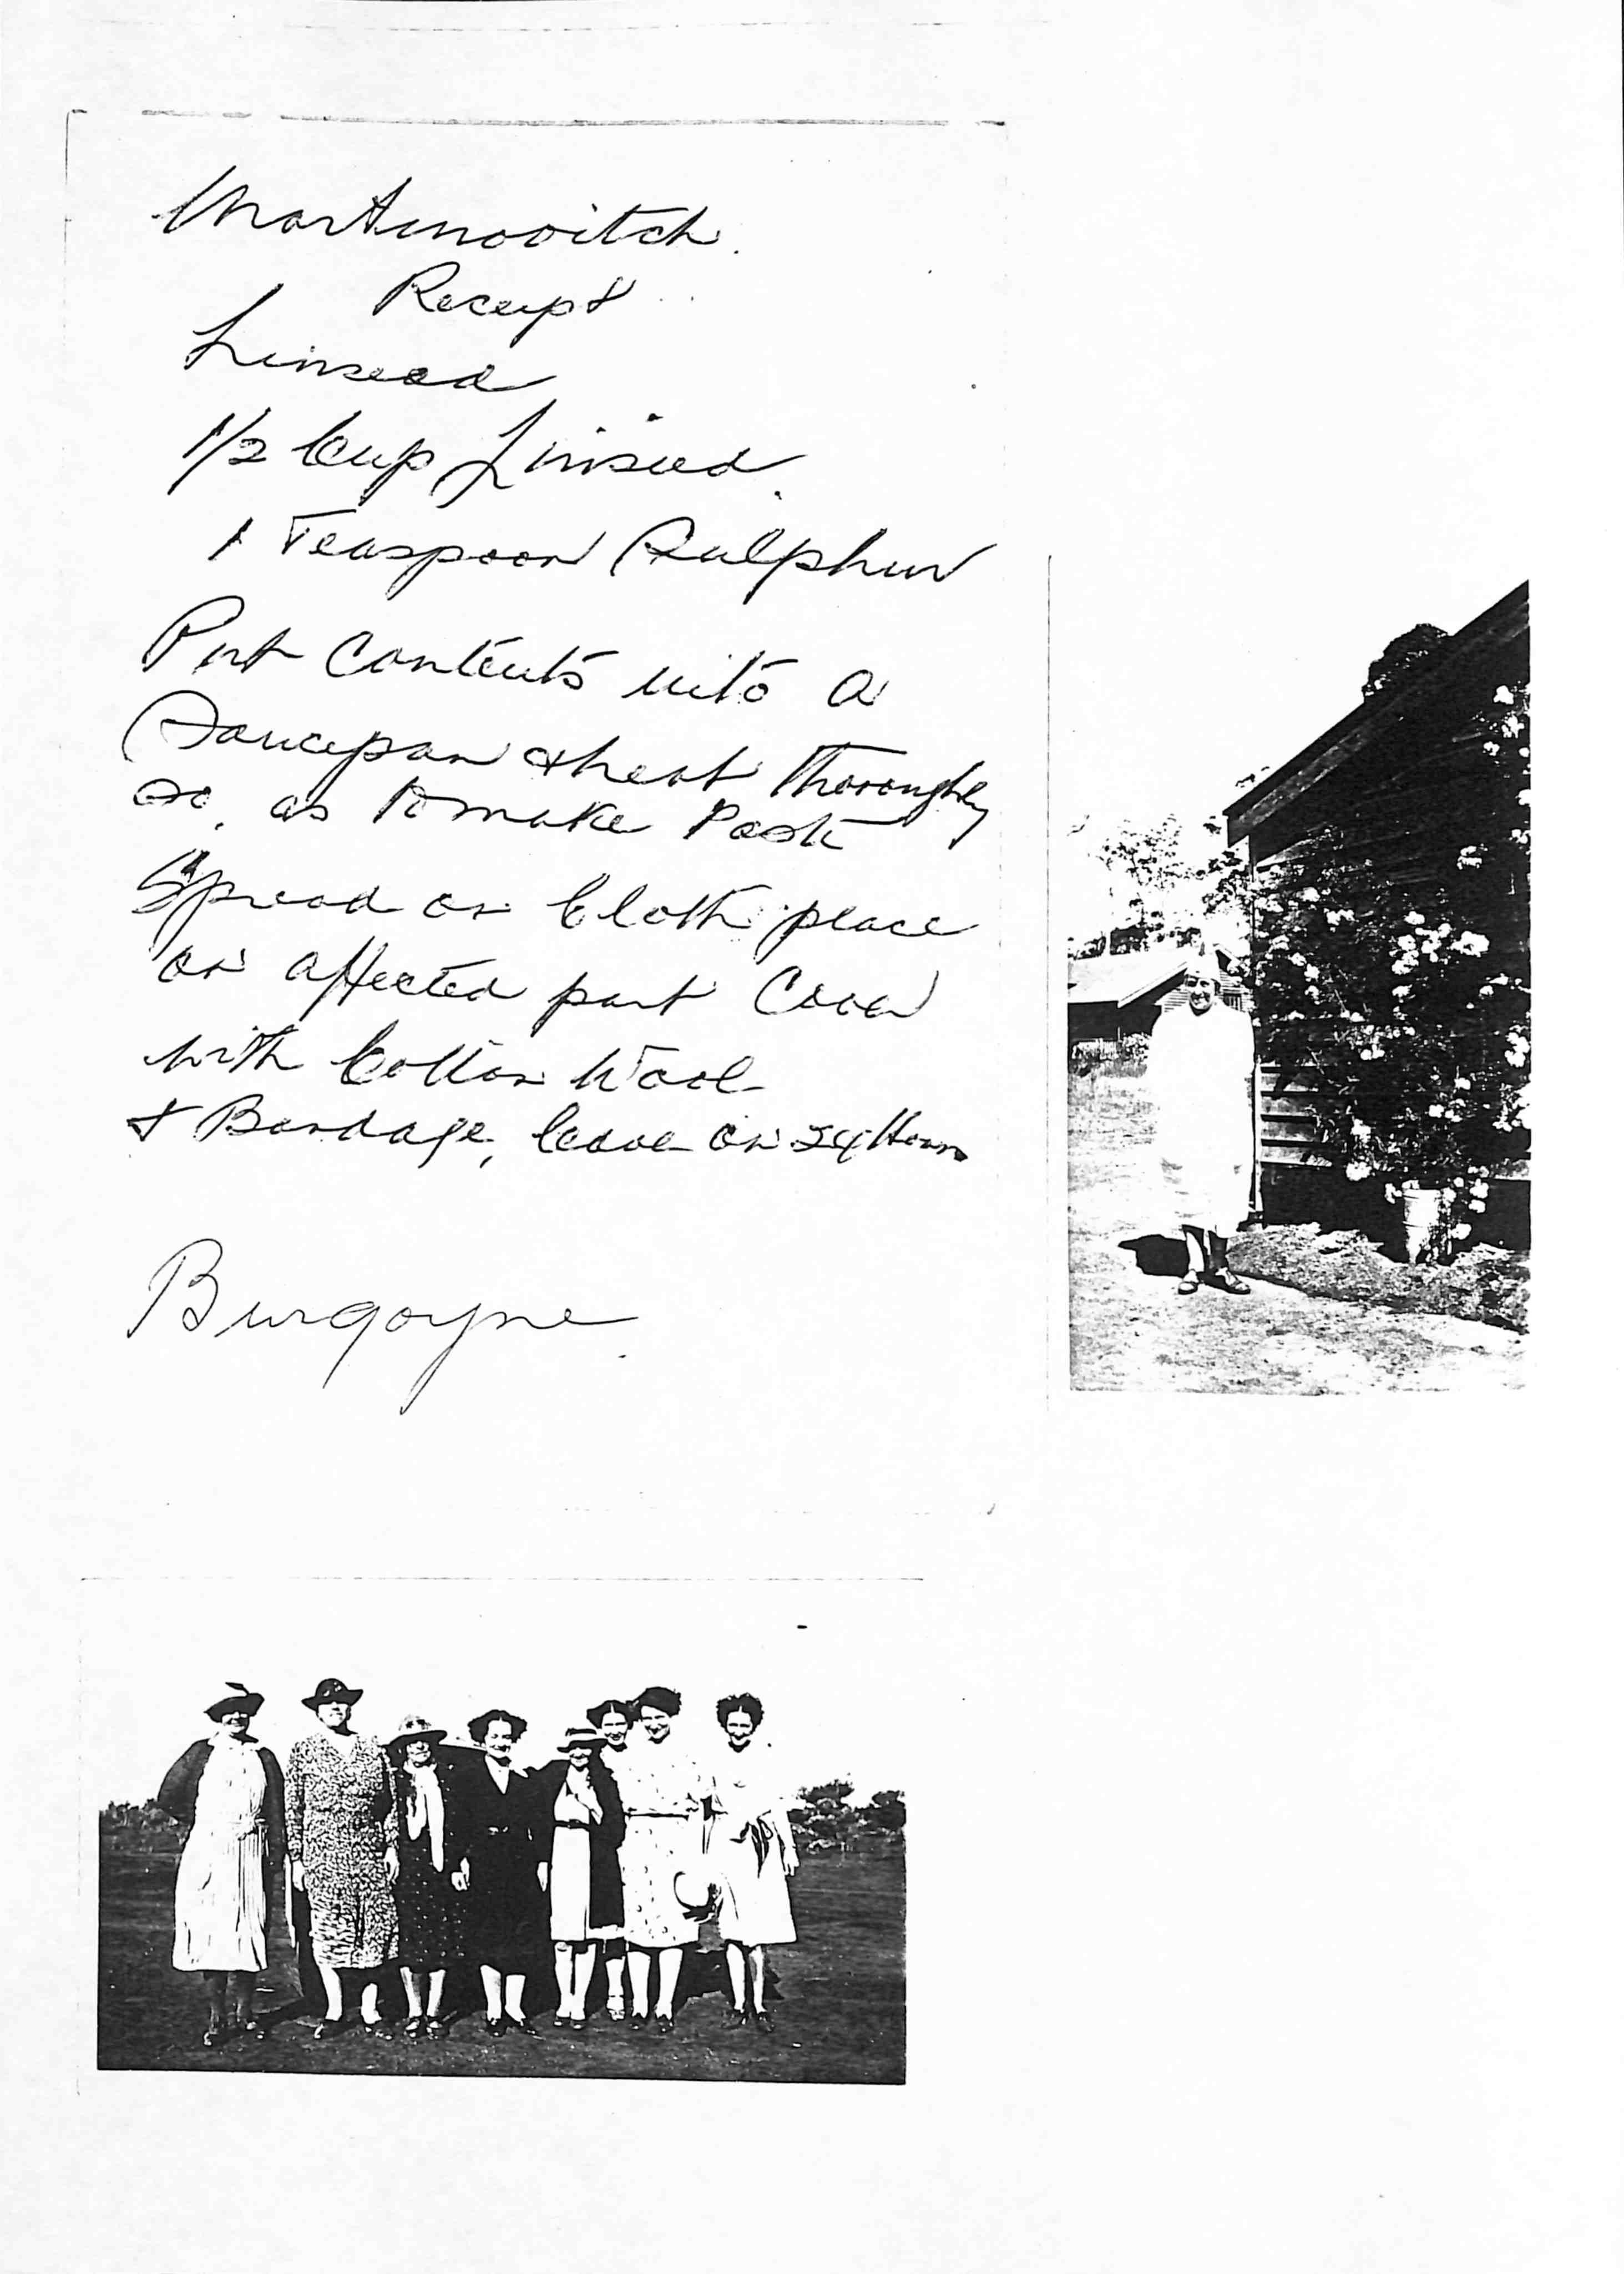 Martinovitch.
Receipt
Linseed
1/2 Cup Linseed.
1 Teaspoon Sulphur
Put Contents into a
Saucepan & heat Thoroughly
so, as to make Paste
Spread on Cloth place
on affected part Cover
with Cotton Wool
& Bandage, leave on 24 Hours
Burgoyne.